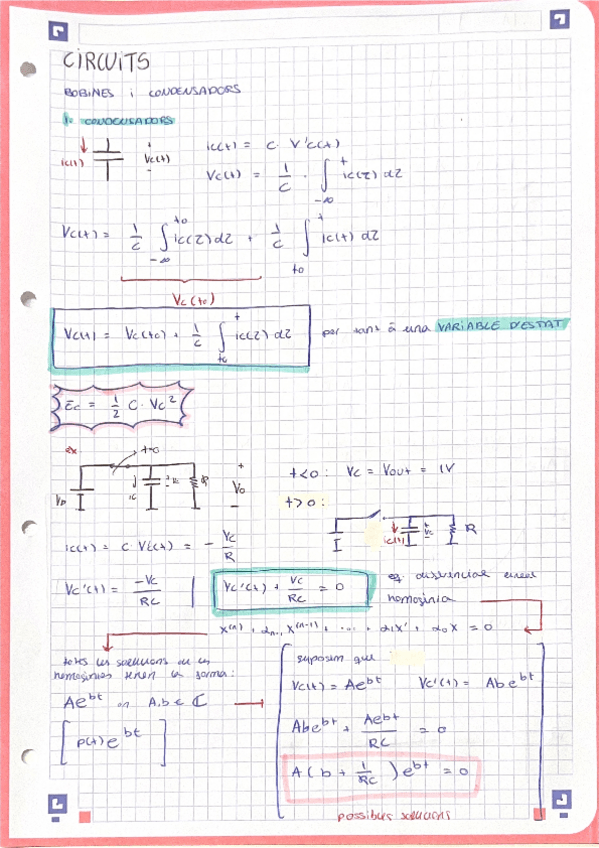 CIRCUITS
BOBINES i CONDENSADORS
1. CONDENSADORS
ic(t)
+
Vc(t)
-
ic(t) = C · V'c(t)
Vc(t) = 1/C · ∫_{-∞}^{t} ic(z) dz
Vc(t) = 1/C ∫_{-∞}^{to} ic(z) dz + 1/C ∫_{to}^{t} ic(t) dz
Vc(to)
Vc(t) = Vc(to) + 1/C ∫_{to}^{t} ic(z) dz
per tant à una VARIABLE D'ESTAT
Ec = 1/2 C · Vc²
ex:
t=0
ic
+
Vo
-
t<0: Vc = Vout = 1V
t>0:
ic(t)
+
Vc
-
R
ic(t) = C · Vc'(t) = - Vc/R
Vc'(t) = -Vc/RC
Vc'(t) + Vc/RC = 0
eq. diferencial lineal
homogènia
x^(n) + αn-1 x^(n-1) + ... + α1x' + α0x = 0
totes les solucions de les
homogènies tenen la forma:
Ae^bt on A,b ∈ ℂ
[p(t)e^bt]
suposem que
Vc(t) = Ae^bt Vc'(t) = Abe^bt
Abe^bt + Ae^bt/RC = 0
A(b + 1/RC)e^bt = 0
possibles solucions